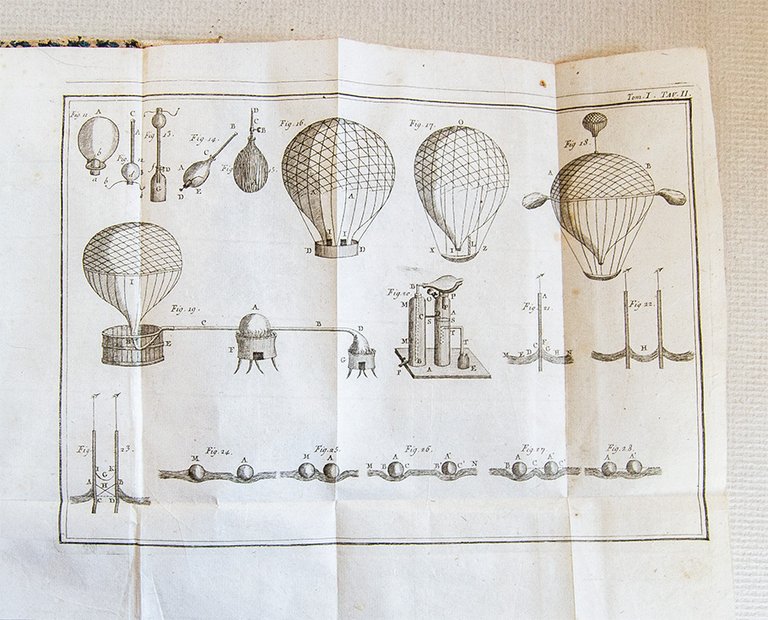 Tom. I. TAV. II.
Fig. 11. A b a
C A b
Fig. 13. G
Fig. 14. B C A E D
D C B
Fig. 16. A A I I D D
Fig. 17. O I L X Z
Fig. 18. A B
I H E
Fig. 19. C A B D F G
Fig. 20 B G P M C A S S M B T F A E
Fig. 21. A C F M E D G H N
Fig. 22. H
Fig. 23. I K G A H B C D
Fig. 24. M A
Fig. 25. M A
Fig. 26. M B A C B C' N
Fig. 27 B A C A' C'
Fig. 28. A A'